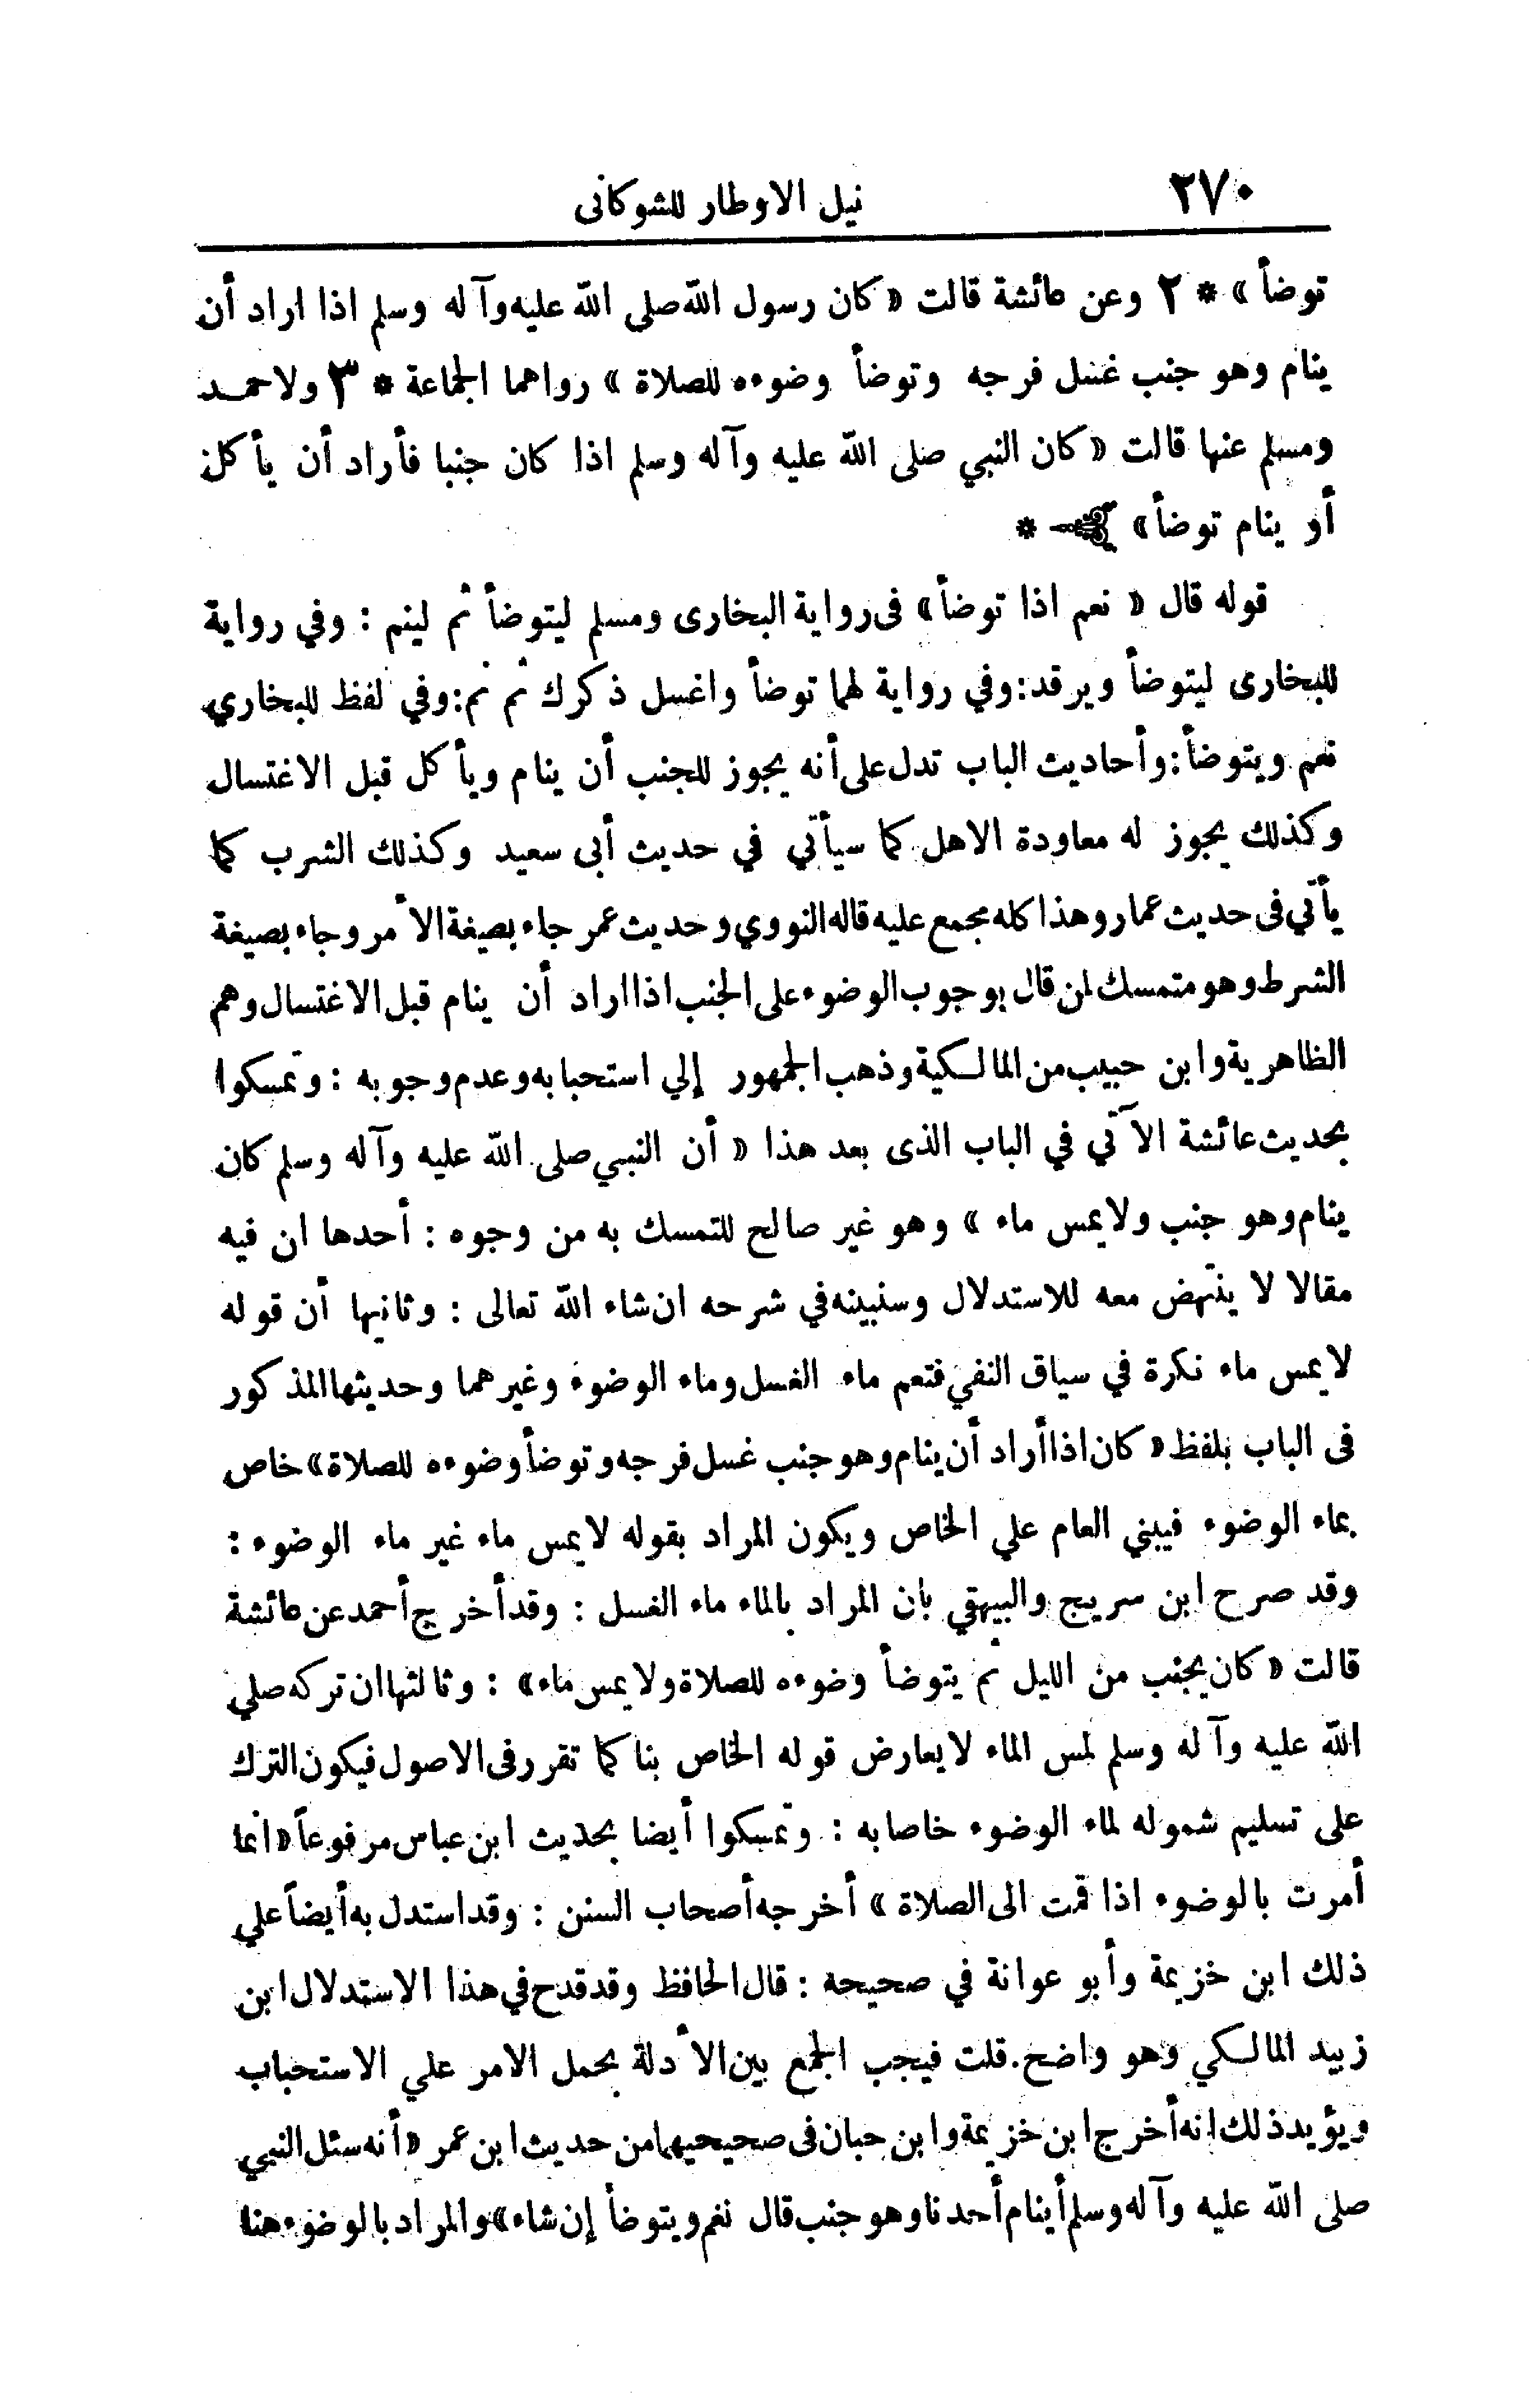 ٢٧٠ نيل الاوطار للشوكانى
توضأ » * ٢ وعن عائشة قالت « كان رسول الله صلى الله عليه وآله وسلم اذا اراد أن
ينام وهو جنب غسل فرجه وتوضأ وضوءه للصلاة » رواهما الجماعة * ٣ ولاحمد
ومسلم عنها قالت « كان النبي صلى الله عليه وآله وسلم اذا كان جنبا فأراد أن يأكل
أو ينام توضأ » *
قوله قال « نعم اذا توضأ » فى رواية البخارى ومسلم ليتوضأ ثم لينم : وفي رواية
للبخارى ليتوضأ ويرقد : وفي رواية لهما توضأ واغسل ذكرك ثم نم : وفي لفظ للبخاري
نعم ويتوضأ : وأحاديث الباب تدل على أنه يجوز للجنب أن ينام ويأكل قبل الاغتسال
وكذلك يجوز له معاودة الاهل كما سيأتي في حديث أبى سعيد وكذلك الشرب كما
يأتي فى حديث عمار وهذا كله مجمع عليه قاله النووي وحديث عمر جاء بصيغة الأمر وجاء بصيغة
الشرط وهو متمسك لمن قال بوجوب الوضوء على الجنب اذا اراد أن ينام قبل الاغتسال وهم
الظاهرية وابن حبيب من المالكية وذهب الجمهور إلي استحبابه وعدم وجوبه : وتمسكوا
بحديث عائشة الآتي في الباب الذى بعد هذا « أن النبي صلى الله عليه وآله وسلم كان
ينام وهو جنب ولا يمس ماء » وهو غير صالح للتمسك به من وجوه : أحدها ان فيه
مقالا لا ينتهض معه للاستدلال وسنبينه في شرحه ان شاء الله تعالى : وثانيها أن قوله
لا يمس ماء نكرة في سياق النفي فتعم ماء الغسل وماء الوضوء وغيرهما وحديثها المذكور
فى الباب بلفظ « كان اذا أراد أن ينام وهو جنب غسل فرجه وتوضأ وضوءه للصلاة » خاص
بماء الوضوء فيبني العام علي الخاص ويكون المراد بقوله لا يمس ماء غير ماء الوضوء :
وقد صرح ابن سريج والبيهقي بان المراد بالماء ماء الغسل : وقد أخرج أحمد عن عائشة
قالت « كان يجنب من الليل ثم يتوضأ وضوءه للصلاة ولا يمس ماء » : وثالثها ان تركه صلي
الله عليه وآله وسلم لمس الماء لا يعارض قوله الخاص بنا كما تقرر فى الاصول فيكون الترك
على تسليم شموله لماء الوضوء خاصا به : وتمسكوا أيضا بحديث ابن عباس مرفوعاً « انما
أمرت بالوضوء اذا قمت الى الصلاة » أخرجه أصحاب السنن : وقد استدل به أيضاً علي
ذلك ابن خزيمة وأبو عوانة في صحيحه : قال الحافظ وقد قدح في هذا الاستدلال ابن
زبيد المالكي وهو واضح . قلت فيجب الجمع بين الأدلة بحمل الامر علي الاستحباب
ويؤيد ذلك انه أخرج ابن خزيمة وابن حبان فى صحيحيهما من حديث ابن عمر « أنه سئل النبي
صلى الله عليه وآله وسلم أينام أحدنا وهو جنب قال نعم ويتوضأ إن شاء » والمراد بالوضوء هنا